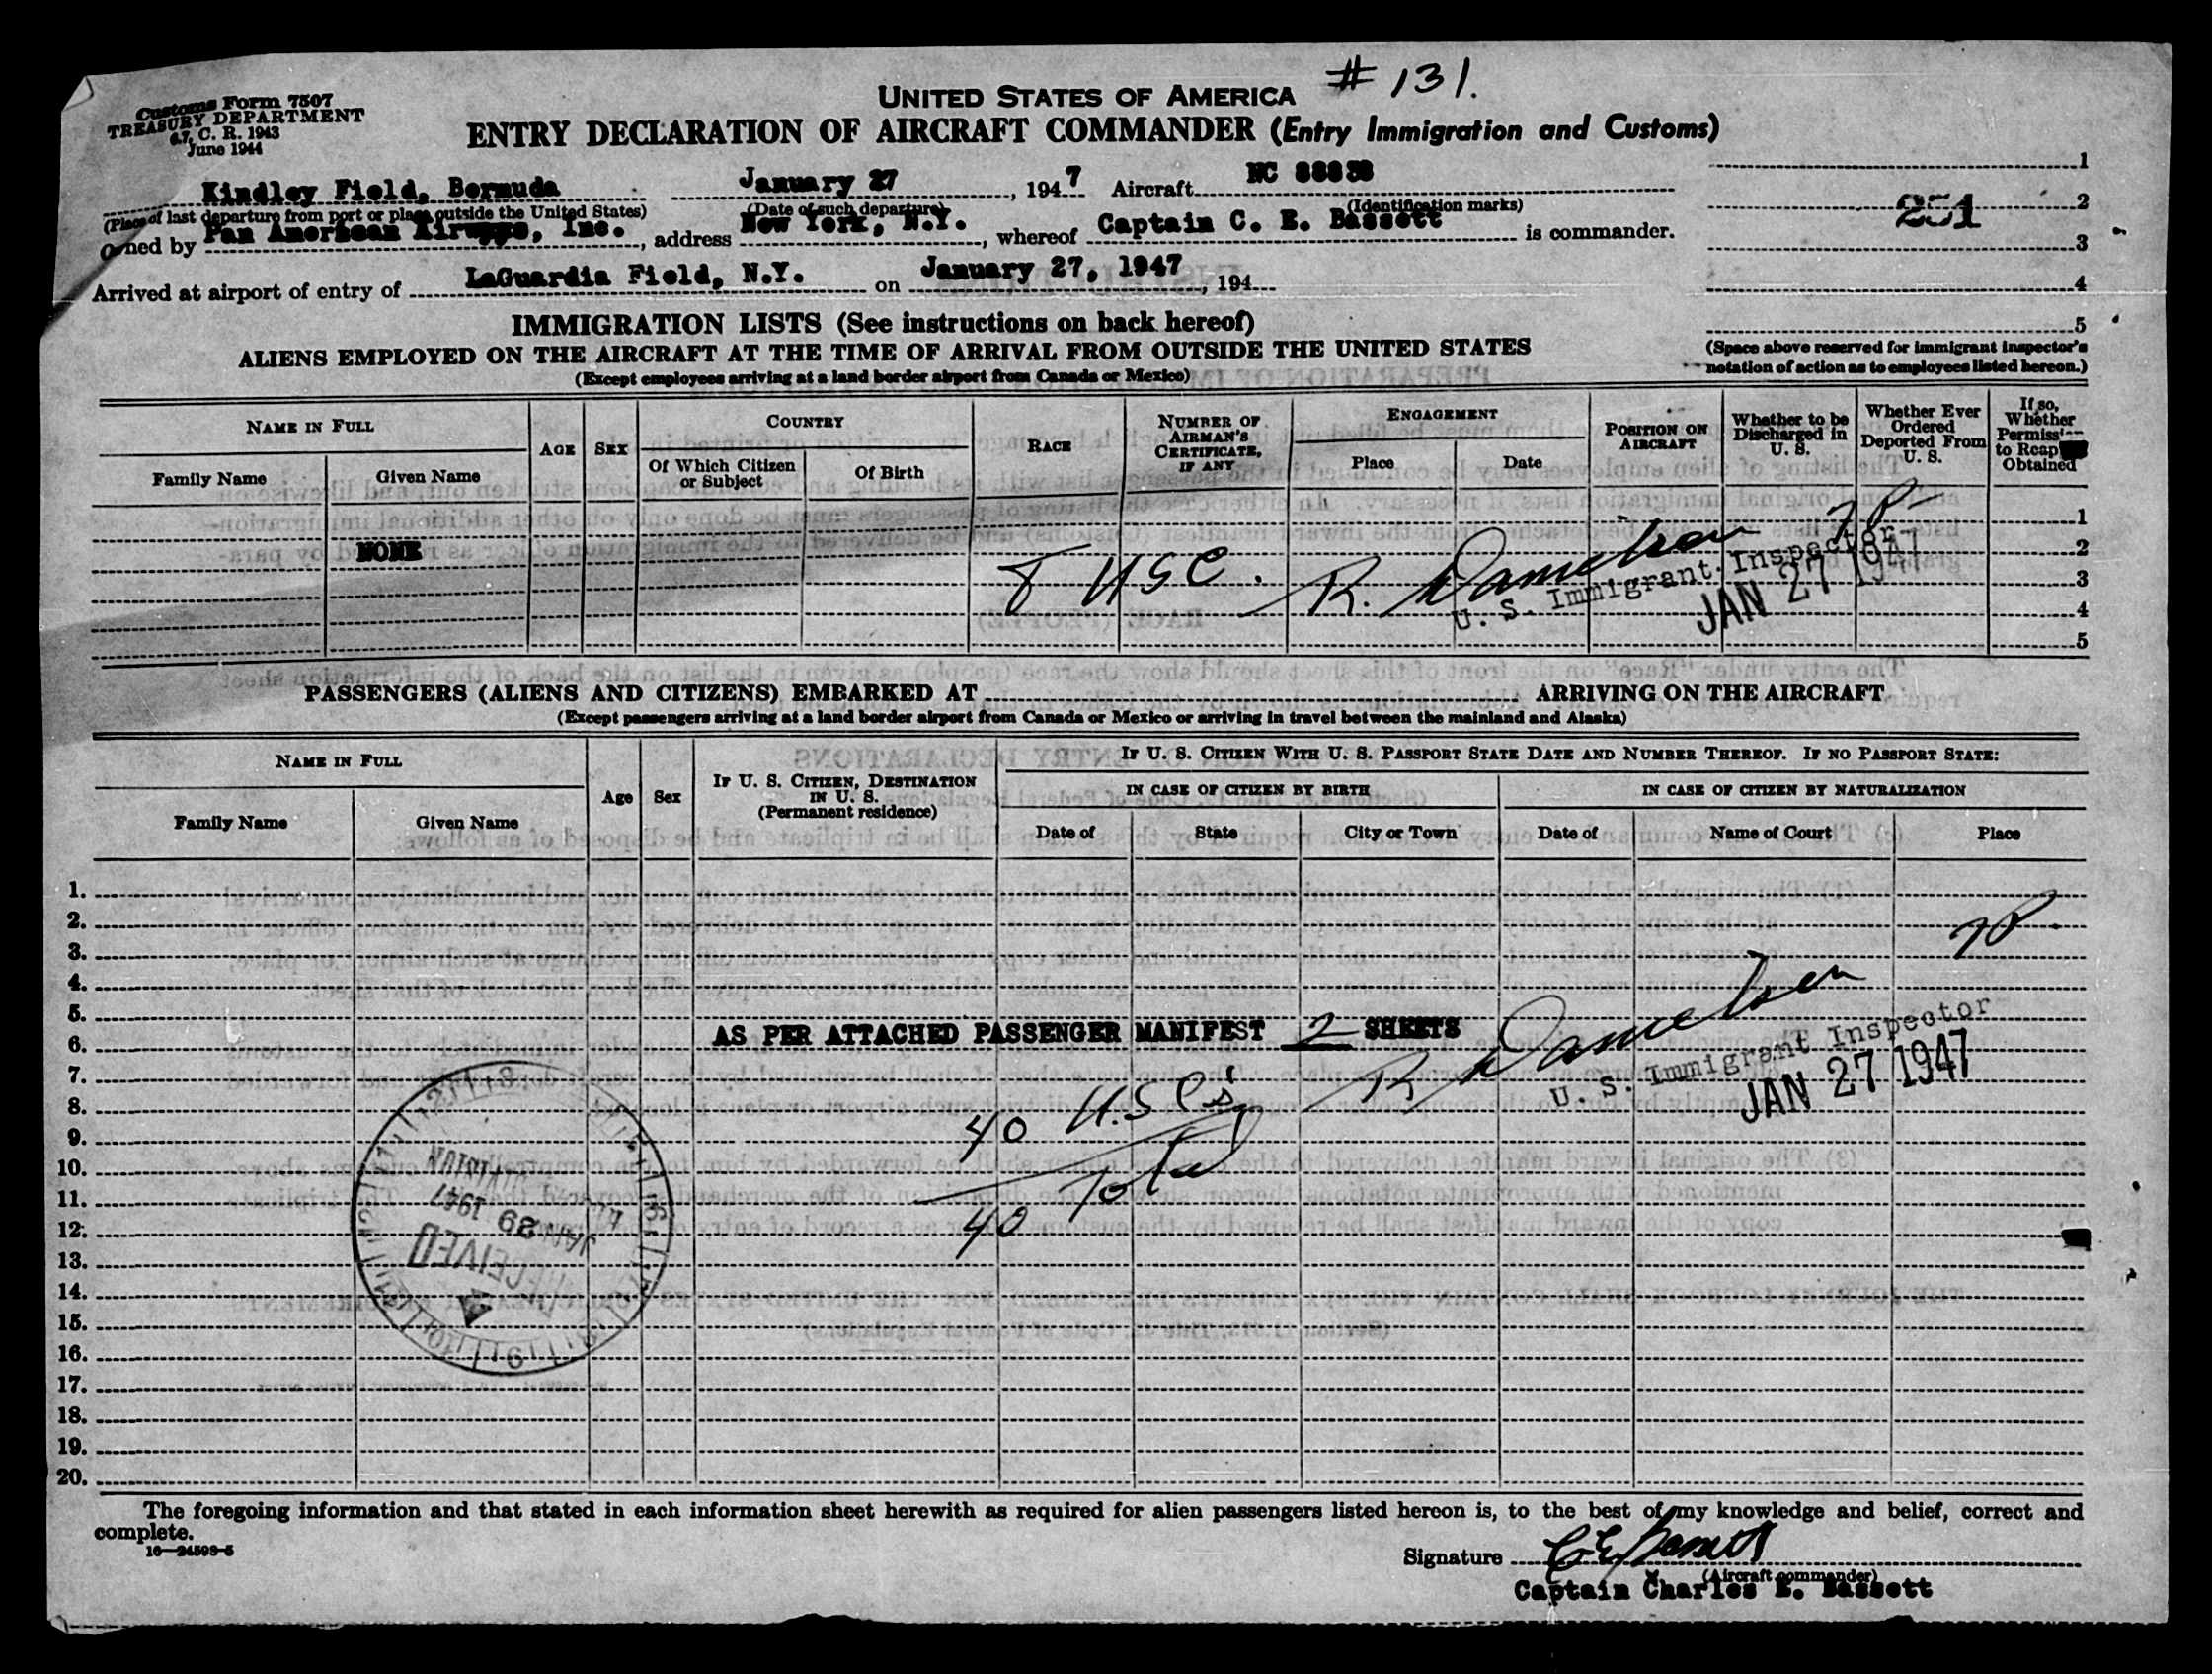 # 131.
UNITED STATES OF AMERICA
Customs Form 7507
TREASURY DEPARTMENT
C. R. 1943
June 1944
ENTRY DECLARATION OF AIRCRAFT COMMANDER (Entry Immigration and Customs)
Kindley Field, Bermuda January 27, 1947 Aircraft NC 88858
(Place of last departure from port or place outside the United States) (Date of such departure) (Identification marks)
Owned by Pan American Airways, Inc., address New York, N.Y., whereof Captain C. E. Bassett is commander.
Arrived at airport of entry of LaGuardia Field, N.Y. on January 27, 1947, 194
1
251 2
3
4
5
(Space above reserved for immigrant inspector's
notation of action as to employees listed hereon.)
IMMIGRATION LISTS (See instructions on back hereof)
ALIENS EMPLOYED ON THE AIRCRAFT AT THE TIME OF ARRIVAL FROM OUTSIDE THE UNITED STATES
(Except employees arriving at a land border airport from Canada or Mexico)
NAME IN FULL
Family Name
Given Name
AGE
SEX
COUNTRY
Of Which Citizen
or Subject
Of Birth
RACE
NUMBER OF
AIRMAN'S
CERTIFICATE,
IF ANY
ENGAGEMENT
Place
Date
POSITION ON
AIRCRAFT
Whether to be
Discharged in
U. S.
Whether Ever
Ordered
Deported From
U. S.
If so,
Whether
Permiss
to Reap
Obtained
1
NONE 2
3
4
5
8 USC. R. Danielsen
U. S. Immigrant Inspector
JAN 27 1947
PASSENGERS (ALIENS AND CITIZENS) EMBARKED AT ARRIVING ON THE AIRCRAFT
(Except passengers arriving at a land border airport from Canada or Mexico or arriving in travel between the mainland and Alaska)
NAME IN FULL
Family Name
Given Name
Age
Sex
IF U. S. CITIZEN, DESTINATION
IN U. S.
(Permanent residence)
IF U. S. CITIZEN WITH U. S. PASSPORT STATE DATE AND NUMBER THEREOF. IF NO PASSPORT STATE:
IN CASE OF CITIZEN BY BIRTH
Date of
State
City or Town
IN CASE OF CITIZEN BY NATURALIZATION
Date of
Name of Court
Place
1.
2.
3.
4.
5.
AS PER ATTACHED PASSENGER MANIFEST 2 SHEETS
6.
7.
8.
9.
10.
11.
12.
13.
14.
15.
16.
17.
18.
19.
20.
R Danielsen
U. S. Immigrant Inspector
JAN 27 1947
40 U.S C's
Total
40
DIVISION
JAN 29 1947
RECEIVED
The foregoing information and that stated in each information sheet herewith as required for alien passengers listed hereon is, to the best of my knowledge and belief, correct and
complete.
16—24593-5
Signature C E Bassett
(Aircraft commander)
Captain Charles E. Bassett